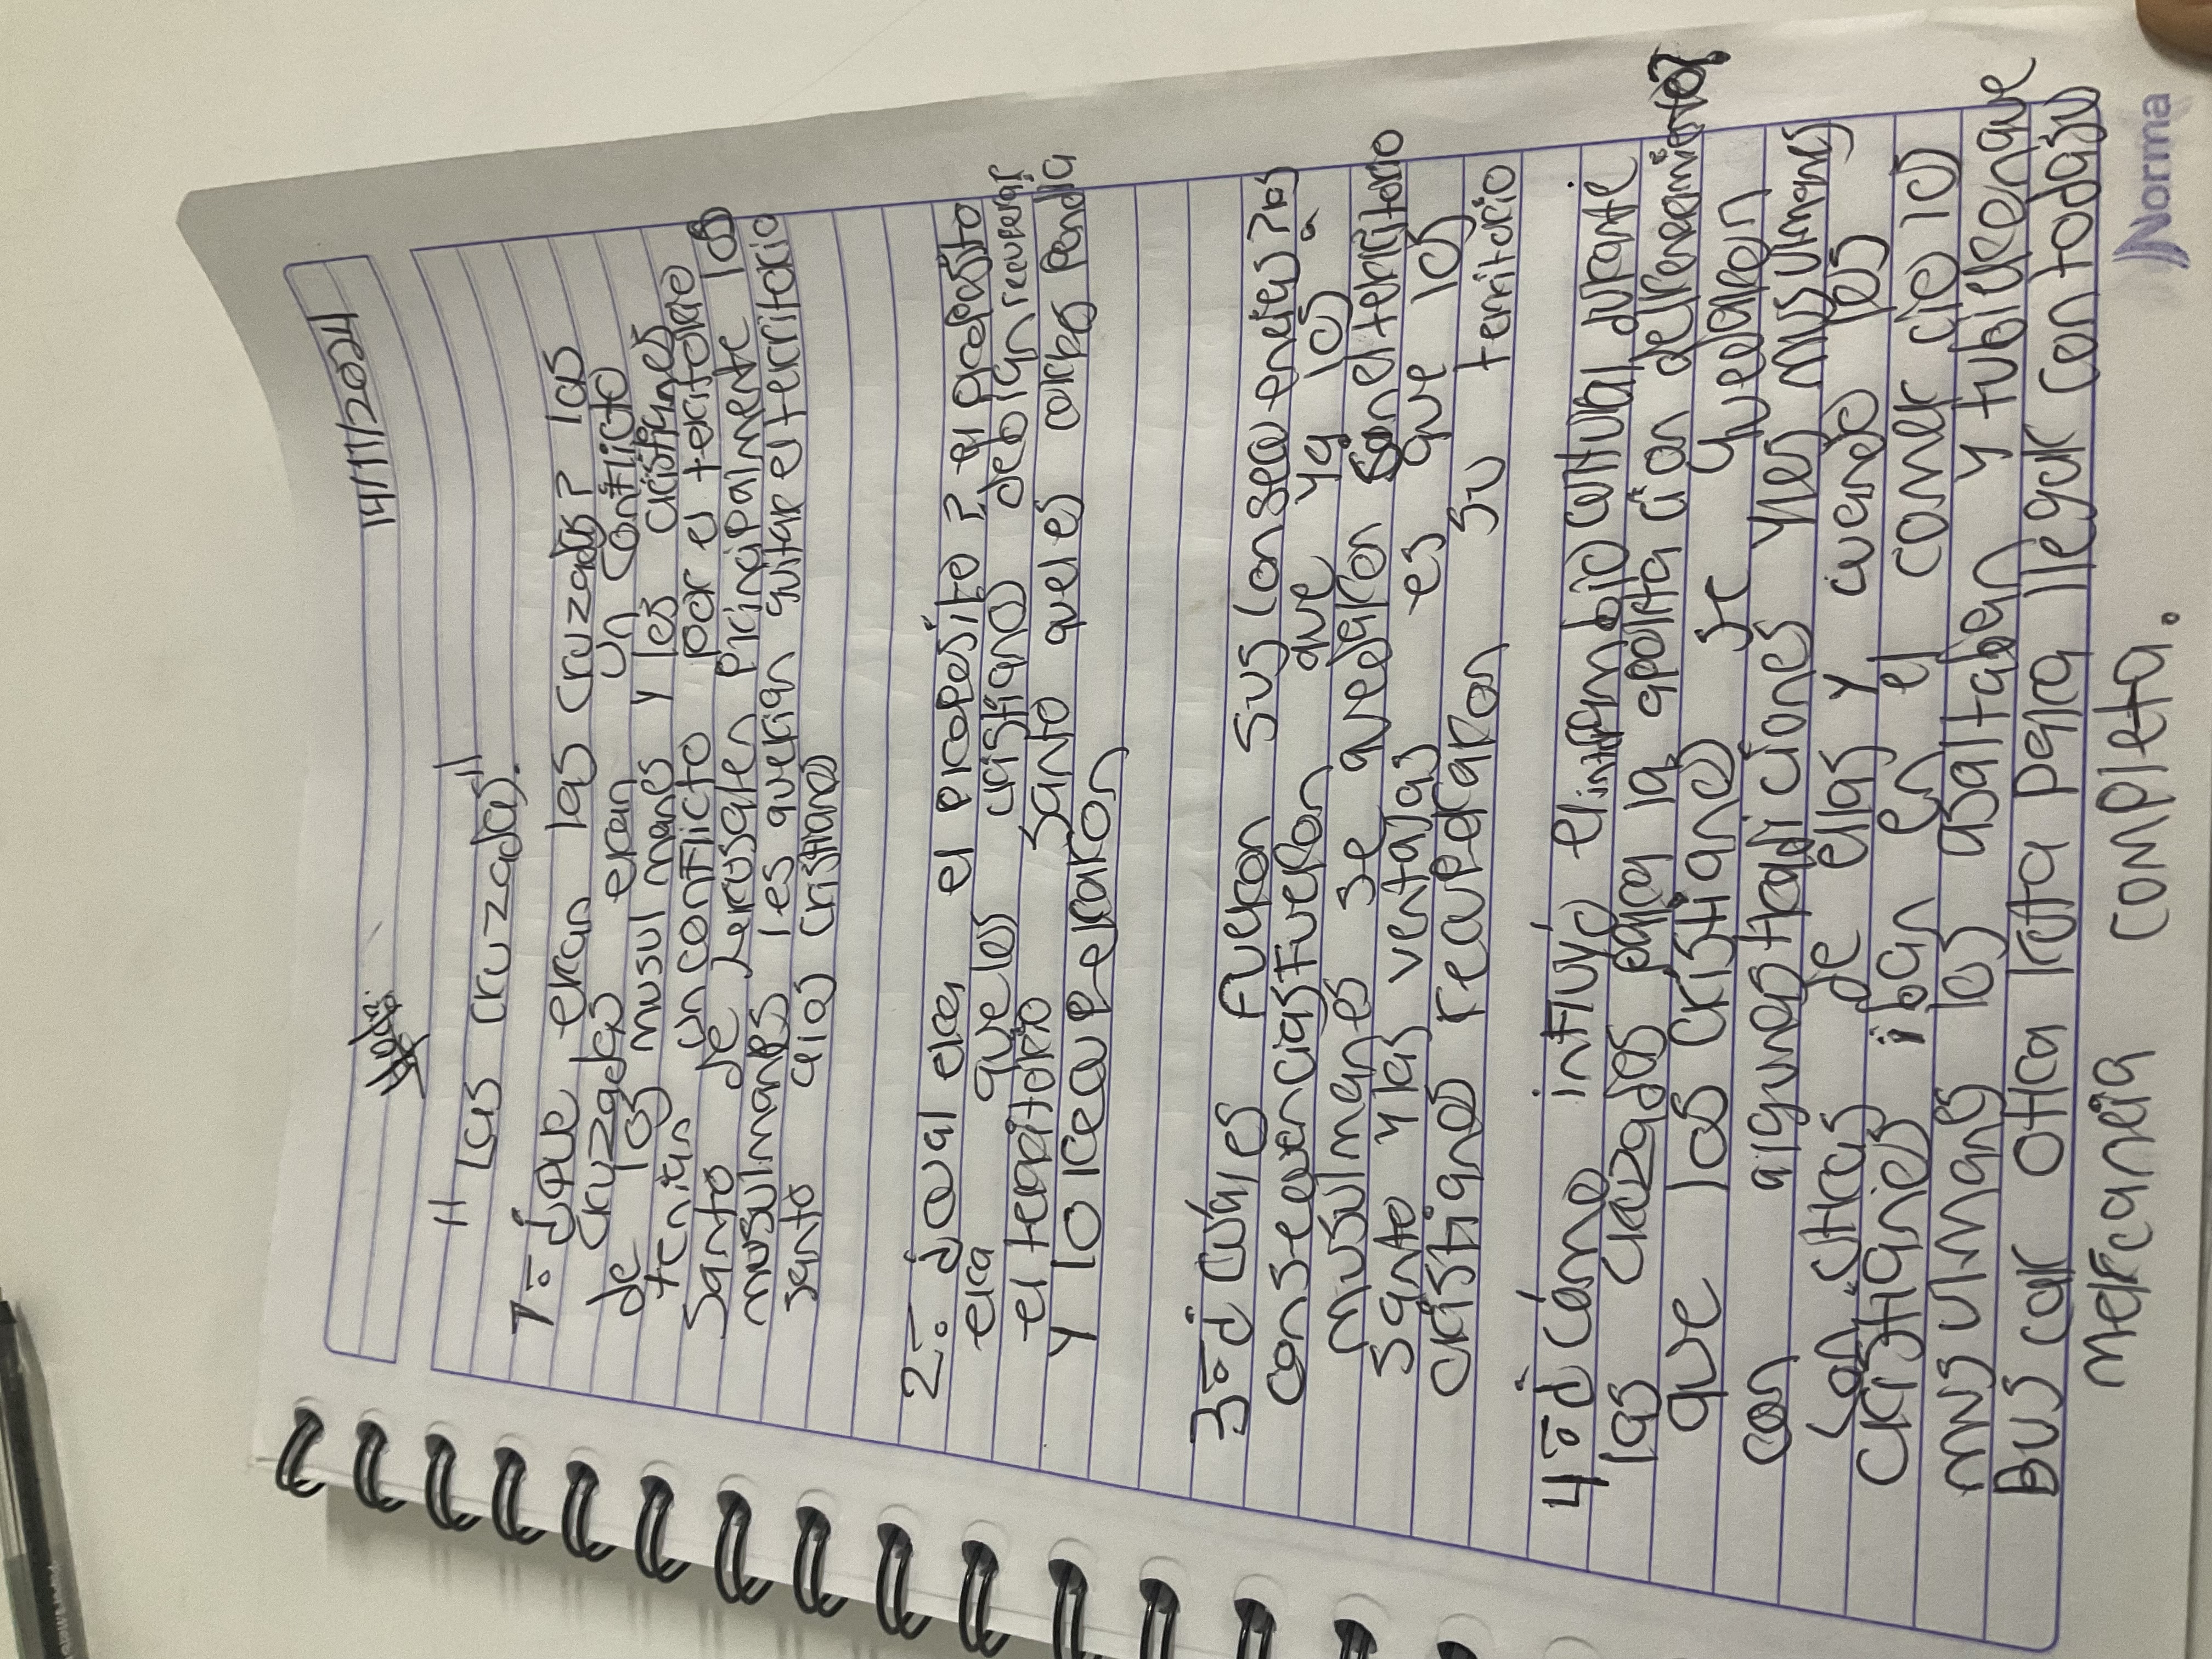 14/11/2024
"Las cruzadas".
1=¿que eran las cruzadas? las
cruzadas eran un conflicto
de los musulmanes y los cristianes
tenian un conflicto por el teritorio
santo de Jerusalen principalmente los
musulmanes les querian quitar el territorio
santo a los cristianos
2=¿cual era el proposito? el proposito
era que los cristiano debian recuperar
el territorio santo que les corres pondia
y lo recuperaron
3=¿cuáles fueron sus consecuencias? las
consecuencias fueron que ya los
musulmanes se quedaron con el territorio
santo y las ventajas es que los
cristianos recuperaron su territorio
4=¿cómo influyó el intercambio cultural durante
las cruzadas para la aportacion del renacimiento?
que los cristianos se quedaron
con algunas tradiciones y los musulmanes
con otras de ellas y cuando los
cristianos iban en el comercio los
musulmanes los asaltaban y tubieron que
Buscar otra ruta para llegar con toda su
mercancia completa.
Norma